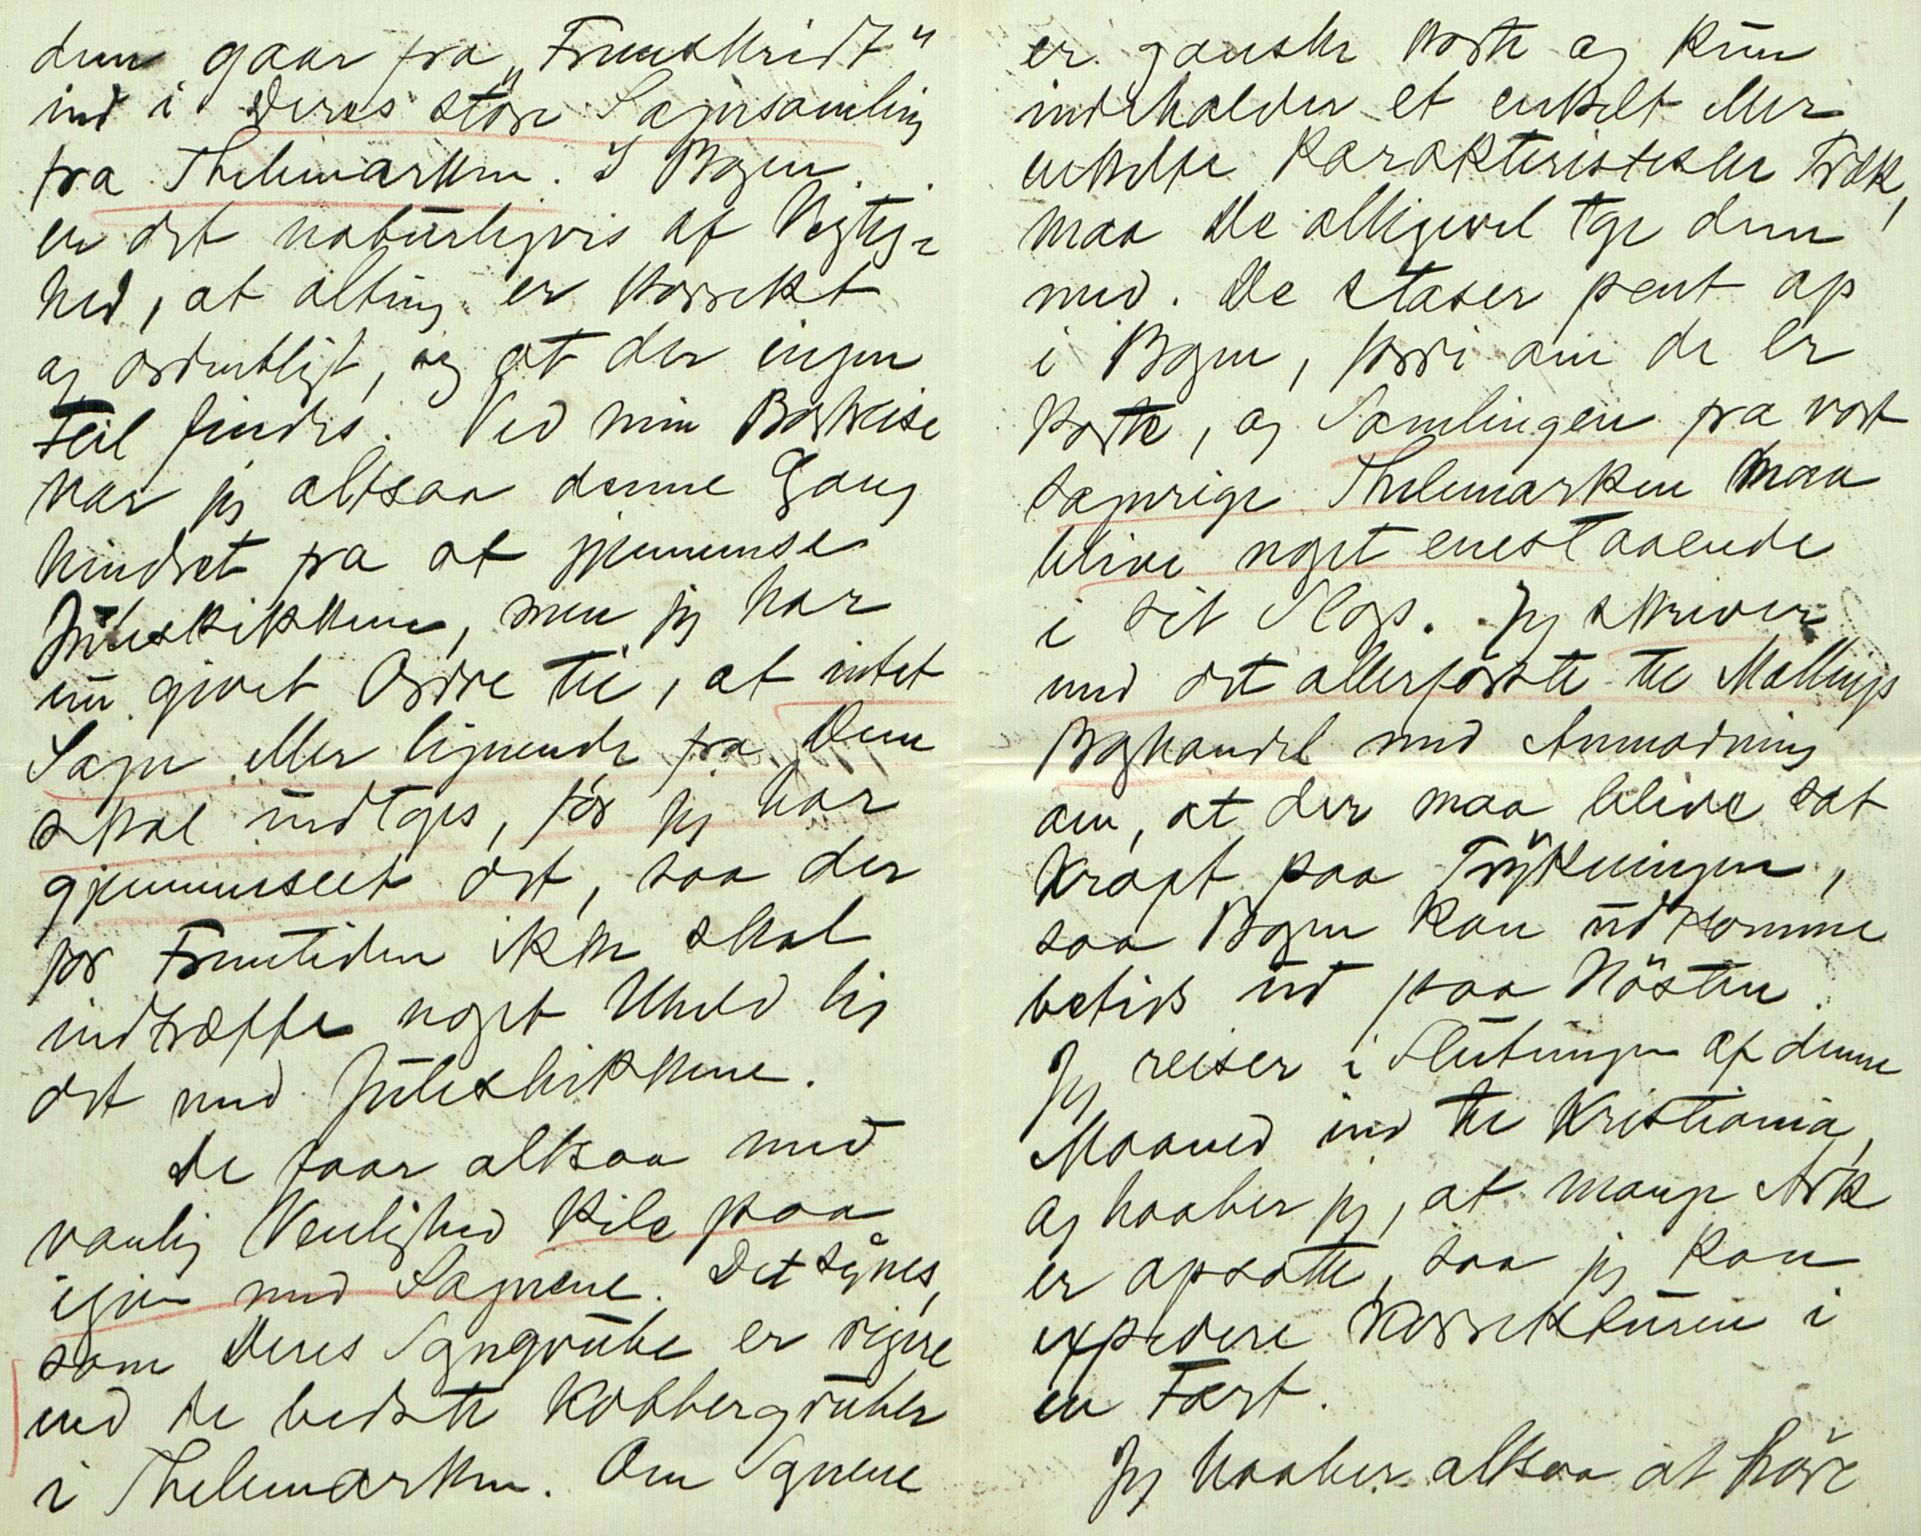 dem gaar fra „Fremskridt"
ind i Deres store Sagnsamling
fra Thelemarken. I Bogen
er det naturligvis af Vigtig=
hed, at alting er korrekt
og ordentligt, og at der ingen
Feil findes. Ved min Bortreise
var jeg altsaa denne Gang
hindret fra at gjennemse
Juleskikkene, men jeg har
nu givet Ordre til, at intet
Sagn eller lignende fra Dem
skal indtages, før jeg har
gjennemseet det, saa der
for Fremtiden ikke skal
indtræffe noget Uheld lig
det med Juleskikkene.
De faar altsaa med
vanlig Venlighed kile paa
igjen med Sagnene. Det synes,
som Deres Sagngrube er rigere
end de bedste Kobbergruber
i Thelemarken. Om Sagnene
er ganske korte og kun
indeholder et enkelt eller
enkelte karakteristiske Træk,
maa De alligevel tage dem
med. De staser pent op
i Bogen, fordi om de er
korte, og Samlingen fra vort
sagnrige Thelemarken maa
blive noget enestaaende
i sit Slags. Jeg skriver
med det allerførste til Mallings
Boghandel med Anmodning
om, at der maa blive sat
Kraft paa Trykningen,
saa Bogen kan udkomme
betids ud paa Høsten.
Jeg reiser i Slutningen af denne
Maaned ind til Kristiania,
og haaber jeg, at mange Ark
er opsatte, saa jeg kan
expedere Korrekturen i
en Fart.
Jeg haaber altsaa at høre